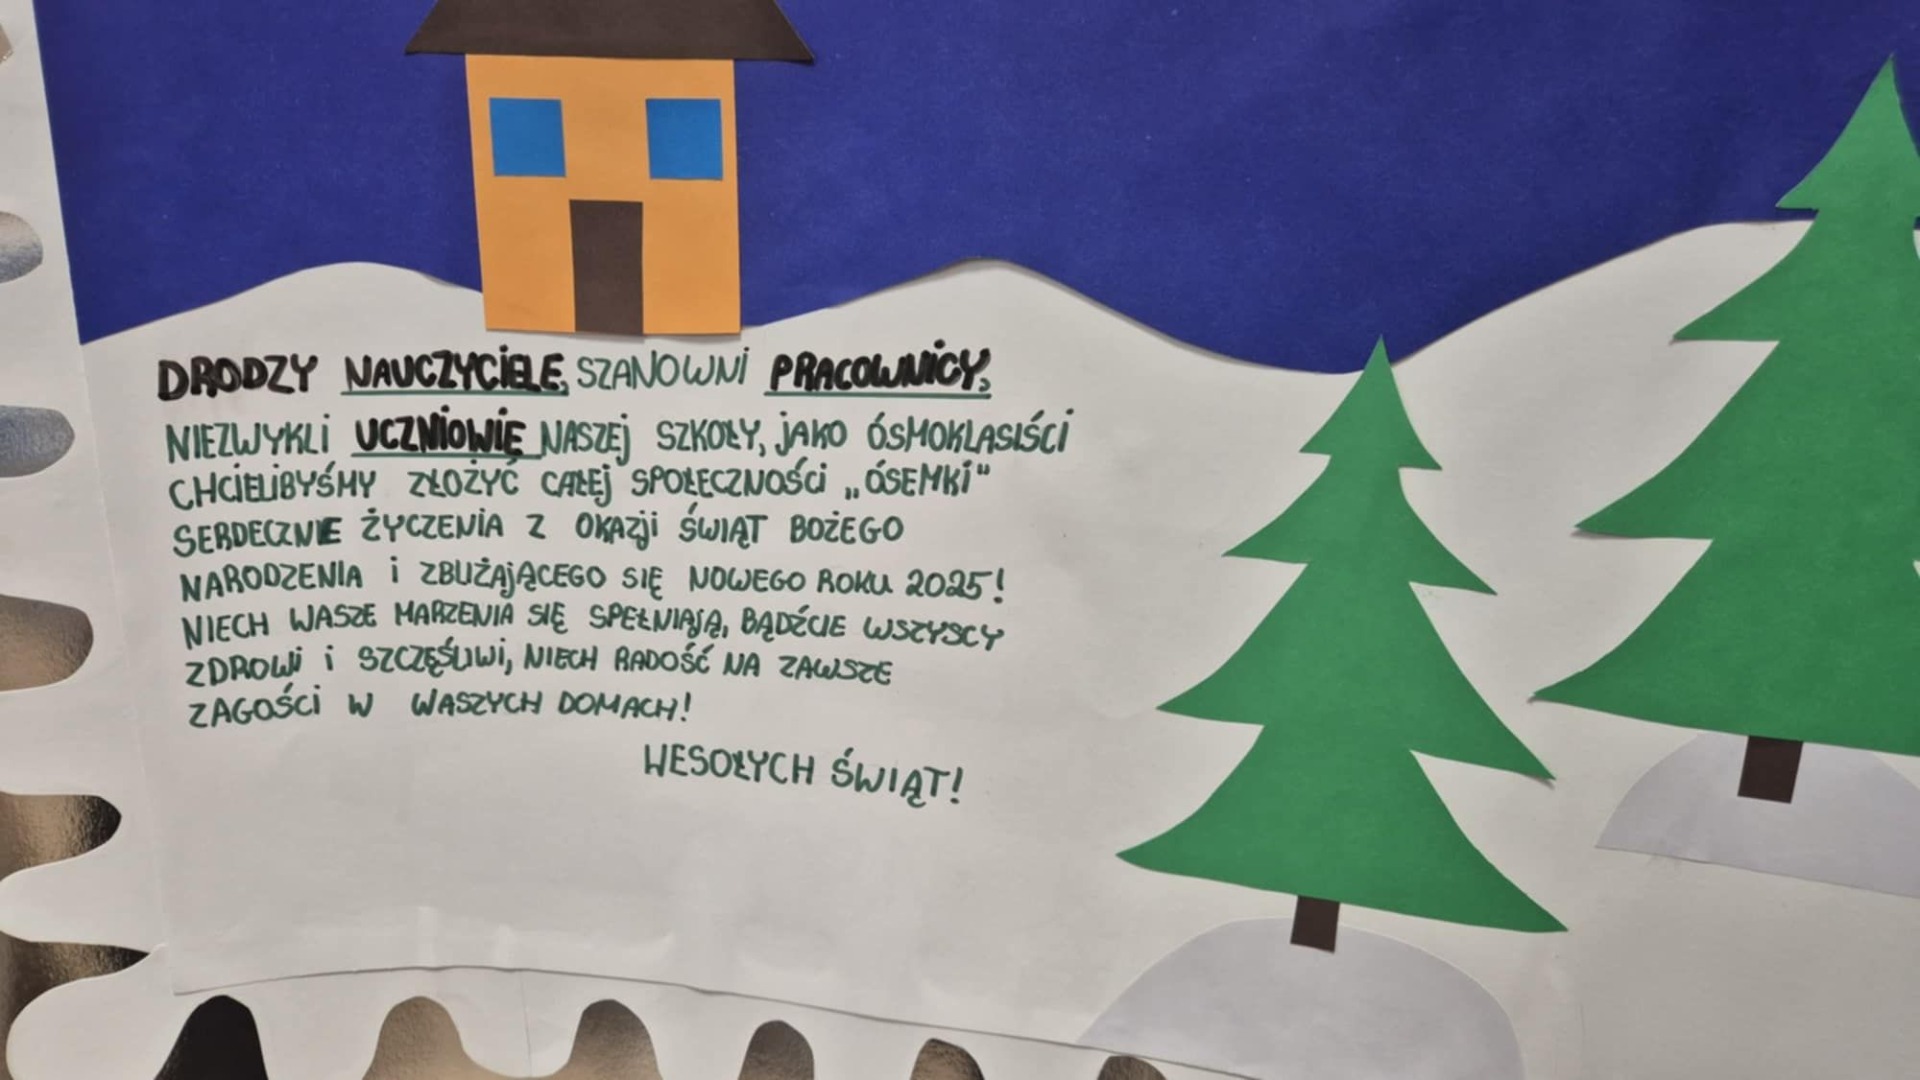 DRODZY NAUCZYCIELE, SZANOWNI PRACOWNICY,
NIEZWYKLI UCZNIOWIE NASZEJ SZKOŁY, JAKO ÓSMOKLASIŚCI
CHCIELIBYŚMY ZŁOŻYĆ CAŁEJ SPOŁECZNOŚCI „ÓSEMKI"
SERDECZNIE ŻYCZENIA Z OKAZJI ŚWIĄT BOŻEGO
NARODZENIA i ZBLIŻAJĄCEGO SIĘ NOWEGO ROKU 2025!
NIECH WASZE MARZENIA SIĘ SPEŁNIAJĄ, BĄDŹCIE WSZYSCY
ZDROWI i SZCZĘŚLIWI, NIECH RADOŚĆ NA ZAWSZE
ZAGOŚCI W WASZYCH DOMACH!
WESOŁYCH ŚWIĄT!